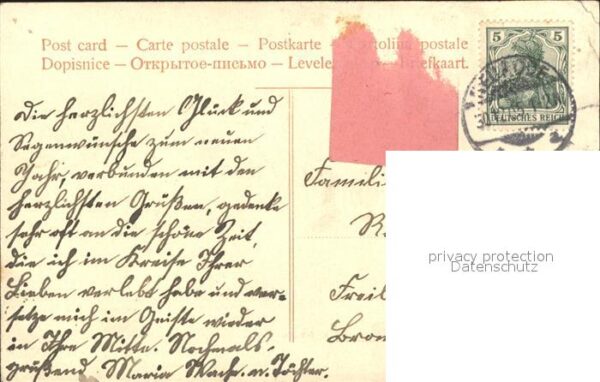 Post card — Carte postale — Postkarte — Cartolina postale
Dopisnice — Открытое-письмо — Levele Briefkaart.
5 5
DEUTSCHES REICH
Die herzlichsten Glück und
Segenswünsche zum neuen
Jahr, verbunden mit den
herzlichsten Grüßen, gedenke
sehr oft an die schöne Zeit,
die ich im Kreise Ihrer
Lieben verlebt habe und ver-
setze mich im Geiste wieder
in Ihre Mitte. Nochmals
grüßend Maria u. Töchter.
Famili
R.
Freil
Bro
privacy protection
Datenschutz